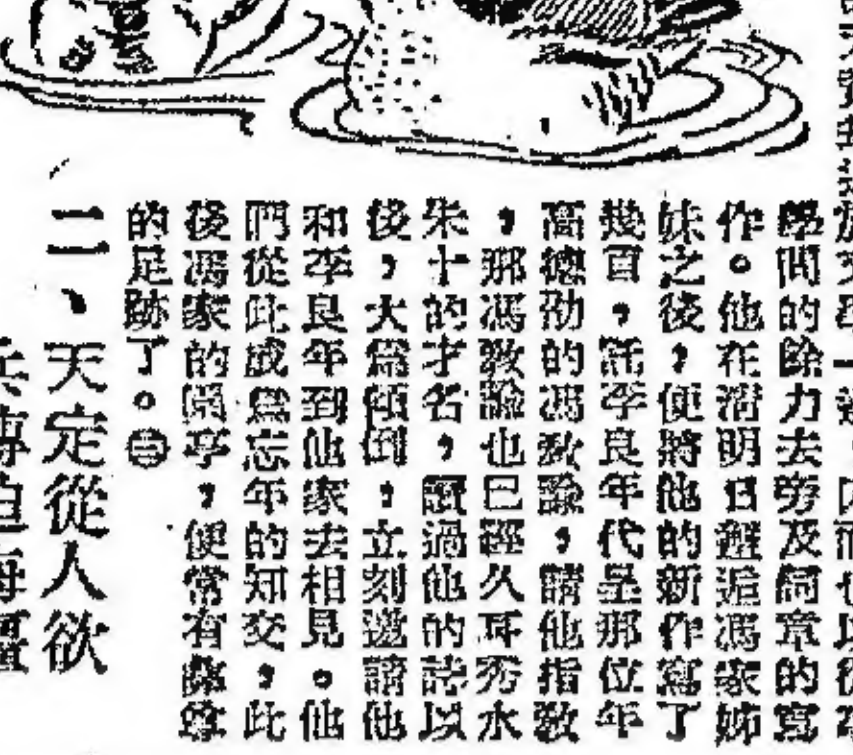 於文學一途，因而也以從事
學問的餘力去旁及詞章的寫
作。他在清明日邂逅馮家姊
妹之後，便將他的新作寫了
幾頁，託李良年代呈那位年
高德劭的馮敎諭，請他指敎
，那馮敎諭也已經久耳秀水
朱十的才名，讀過他的詩以
後，大爲傾倒，立刻邀請他
和李良年到他家去相見。他
們從此成爲忘年的知交，此
後馮家的園亭，便常有彝尊
的足跡了。㊂
二、天定從人欲